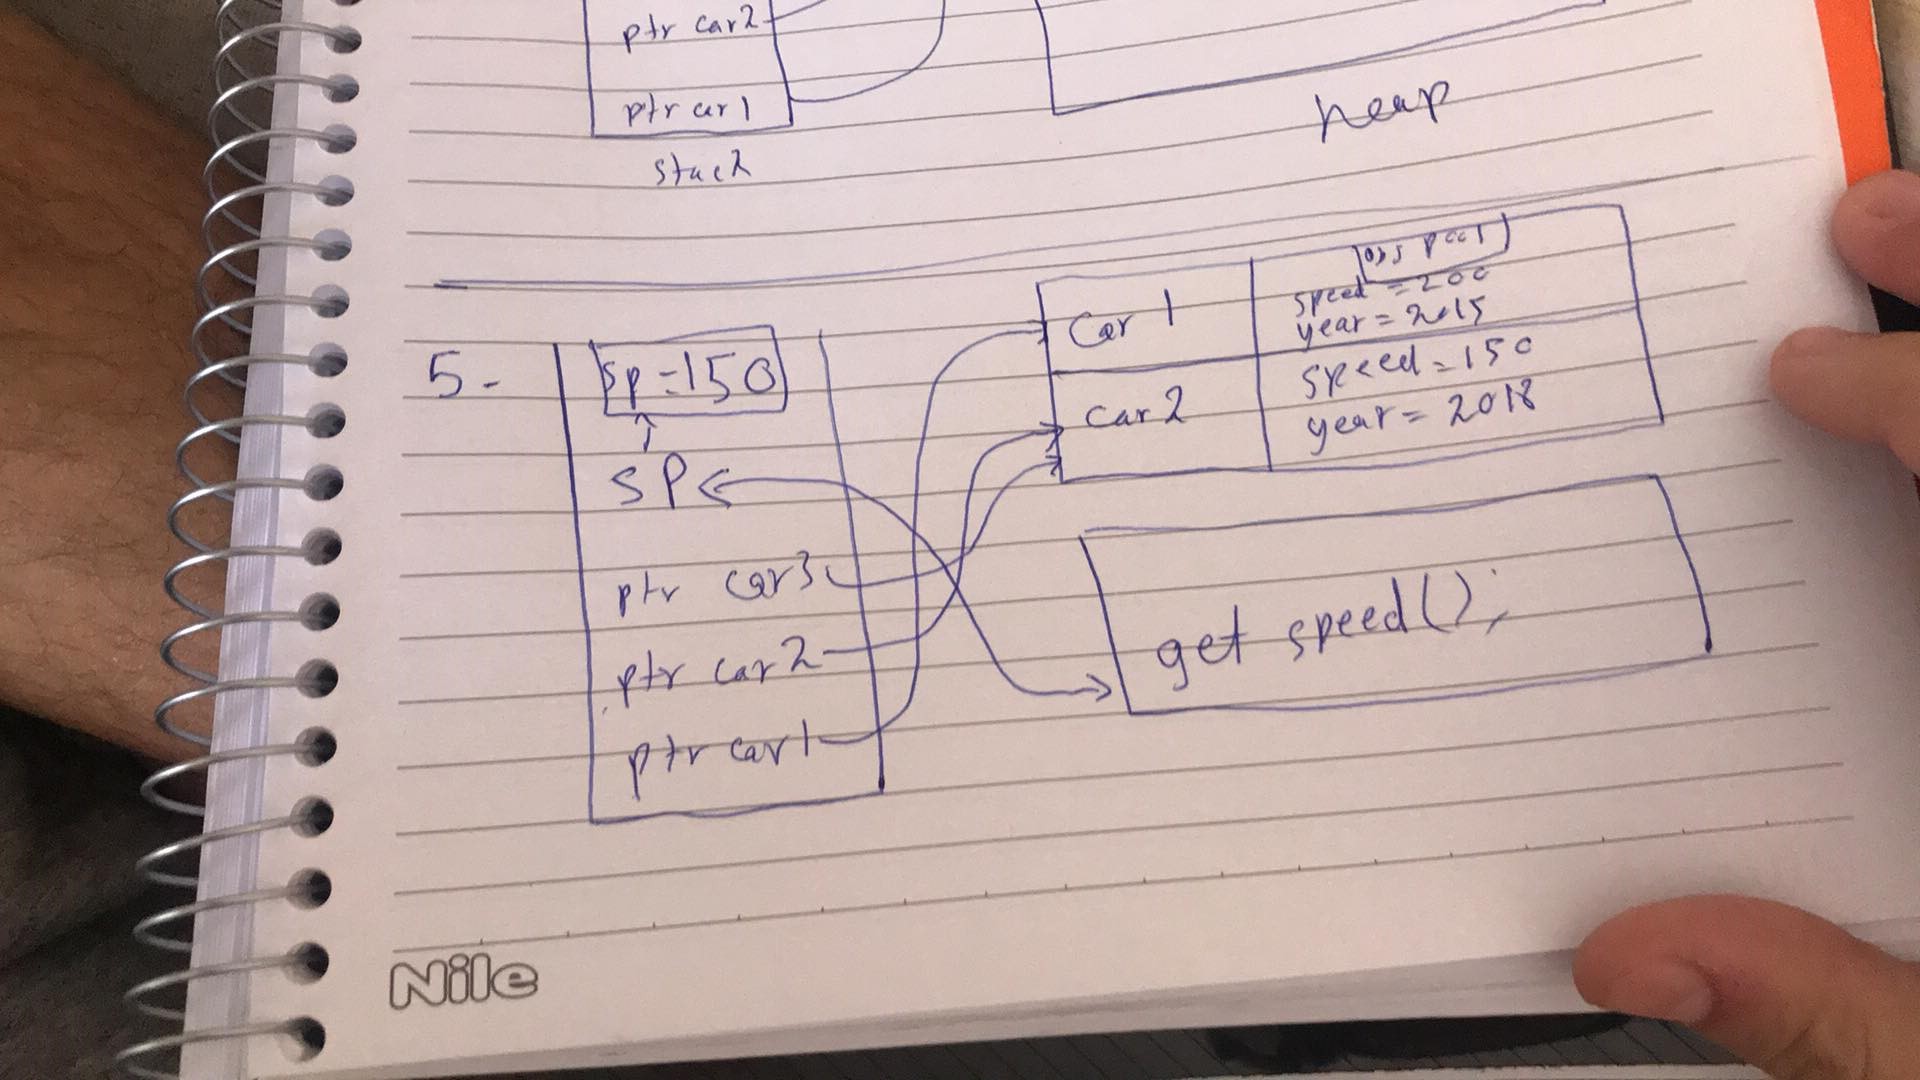 ptr car2
ptr car1
stack
heap
5-
sp=150
SP
ptr car3
ptr car2
ptr car1
Car 1
speed = 200
year = 2015
Car 2
speed = 150
year = 2018
get speed();
Nile